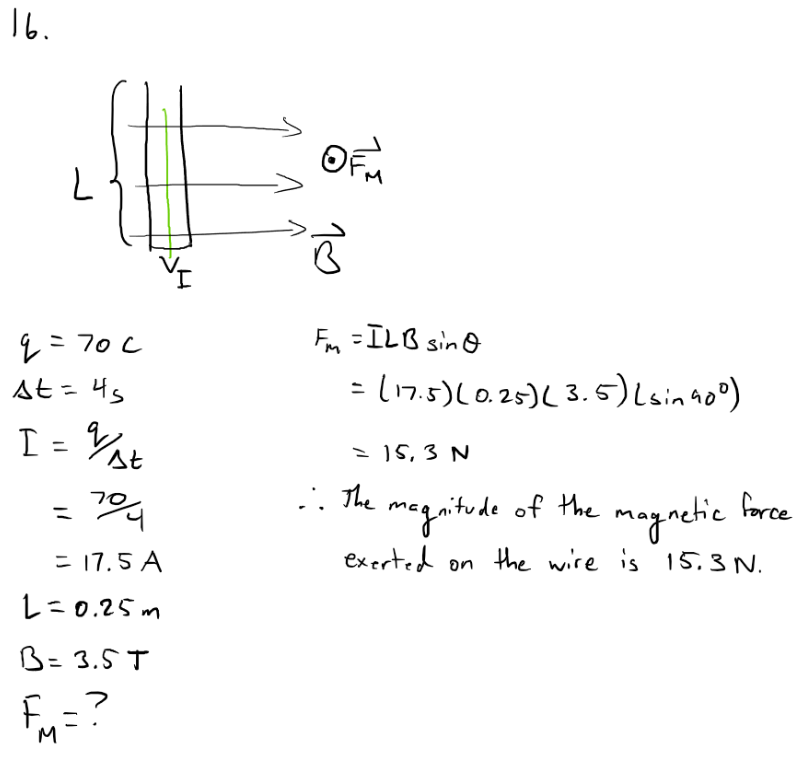 16.
L
⊙F⃗M
B⃗
I
q = 70 C
Δt = 4s
I = q/Δt
= 70/4
= 17.5 A
L = 0.25 m
B = 3.5 T
FM = ?
Fm = ILB sinθ
= (17.5)(0.25)(3.5)(sin90°)
= 15.3 N
∴ The magnitude of the magnetic force
exerted on the wire is 15.3 N.